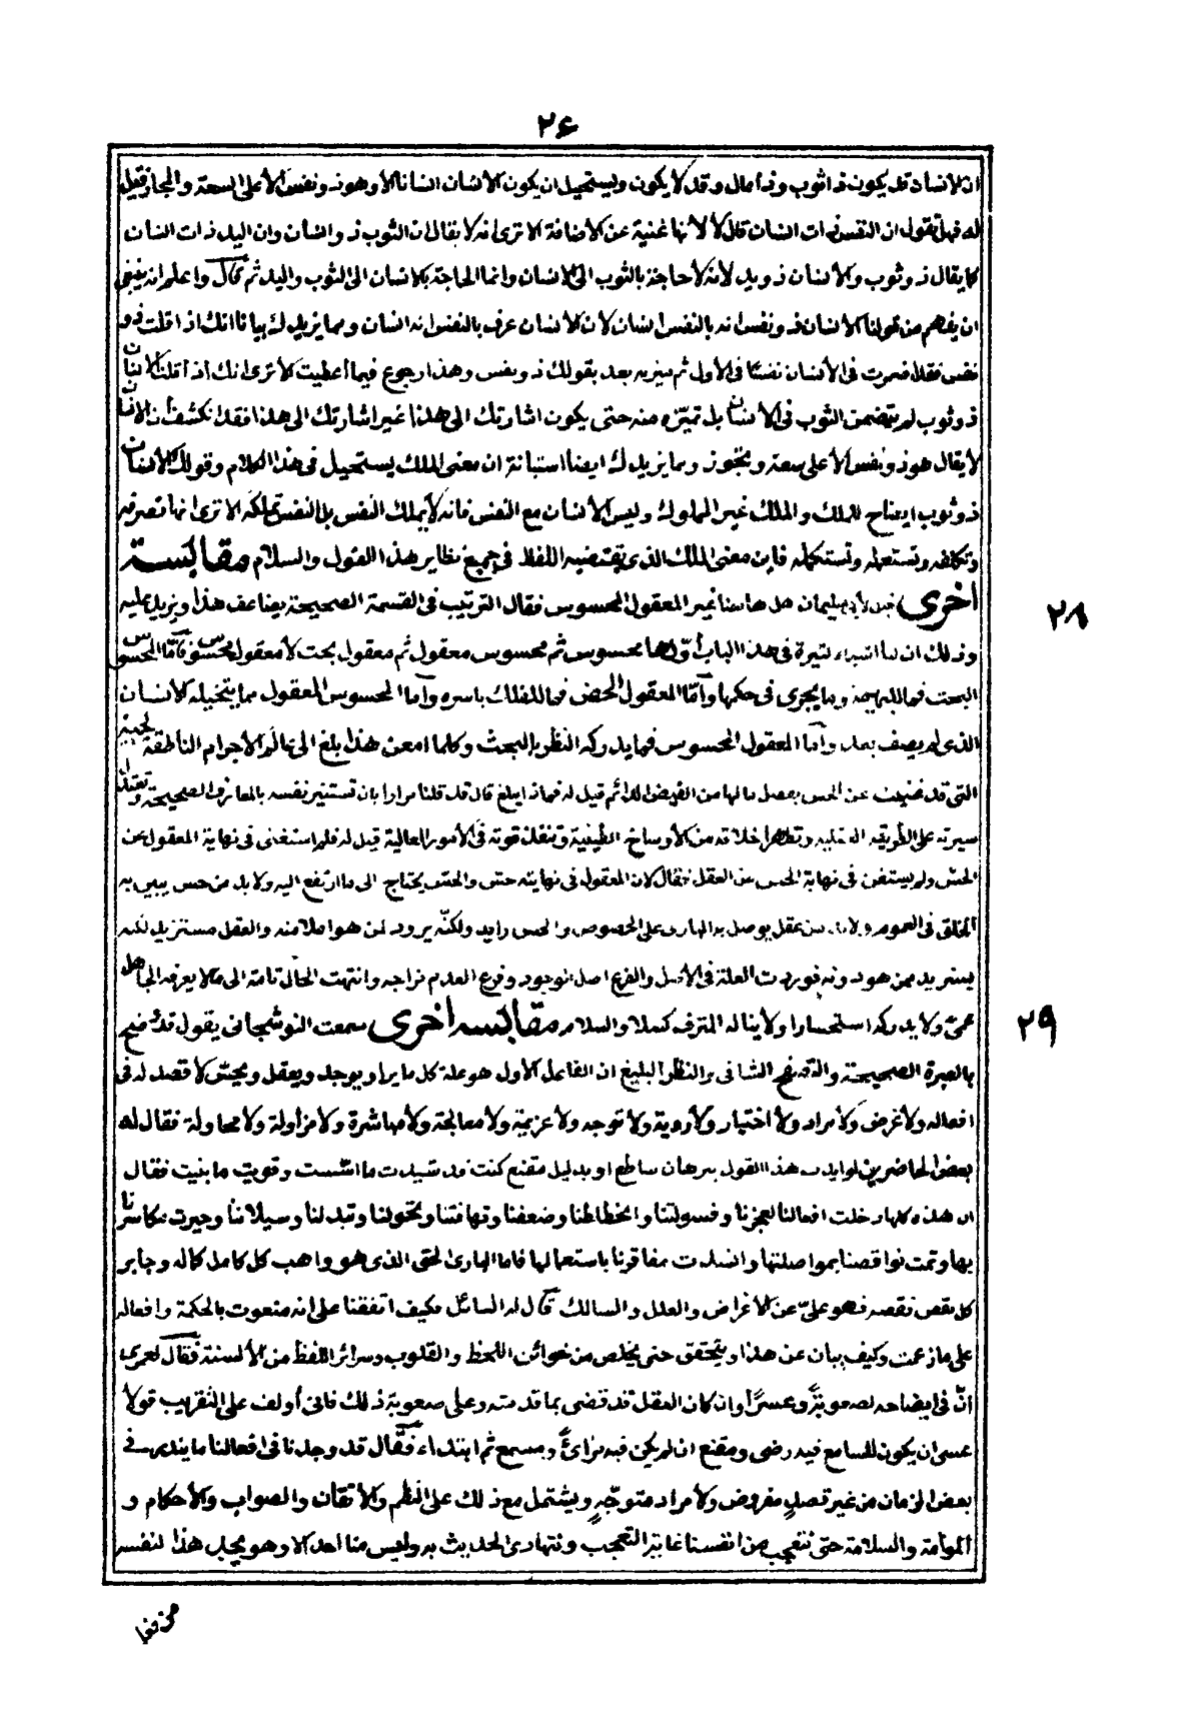 ۲۶
ان الانسان قد يكون ذا ثوب وذا مال وقد لا يكون ويستحيل ان يكون الانسان انسانا الا وهو ذو نفس الا على السعة والمجاز فقيل
له فهل تقول ان النفس ذات انسان قال لا لانها غنية عن الاضافة الا ترى انه لا يقال ان الثوب ذو انسان وان اليد ذات انسان
كما يقال ذو ثوب والانسان ذو يد لانه لا حاجة بالثوب الى الانسان وانما الحاجة بالانسان الى الثوب واليد ثم قال واعلم انه ينبغي
ان يفهم من قولنا الانسان ذو نفس انه بالنفس انسان لان الانسان عرف بالنفس انه انسان ومما يزيدك بيانا انك اذا قلت ذو
نفس فقد اضمرت في الانسان نفسا في الاول ثم ميزته بعد بقولك ذو نفس وهذا رجوع فيما اعطيت الا ترى انك اذا قلت الانسان
ذو ثوب لم يتضمن الثوب في الانسان بل تميزه منه حتى يكون اشارتك الى هذا غير اشارتك الى هذا فقد انكشف أن الانسان
لا يقال هو ذو نفس الا على سعة وتجوز ومما يزيدك ايضا استبانة ان معنى الملك يستحيل في هذا الكلام وقولك الانسان
ذو ثوب ايضاح للملك والملك غير المملوك وليس الانسان مع النفس فانه لا يملك النفس بل النفس تملكه الا ترى انها تصرفه
وتكلفه وتستعمله وتستكمله فاين معنى الملك الذي يقتضيه اللفظ في جميع نظاير هذا القول والسلام مقابسة
اخرى قيل لأبي سليمان هل هاهنا غير المعقول المحسوس فقال الترتيب في القسمة الصحيحة يضاعف هذا ويزيد عليه
۲۸
وذلك ان لنا اشياء كثيرة في هذا الباب أولها محسوس ثم محسوس معقول ثم معقول بحت لا معقول محسوس فأما المحسوس
البحت فما للبهيمة وما يجري في حكمها وأما المعقول المحض فما للفلك باسره وأما المحسوس المعقول مما يتخيله الانسان
الذي لم يصف بعد وأما المعقول المحسوس فما يدركه النظر بالبحث وكلما امعن هذا بلغ الى عالم الأجرام الناطقة الحية
التي قد غنيت عن الحس بفضل ما لها من الفيض الدائم قيل له فماذا يبلغ قال قد قلنا مرارا بان تستنير نفسه بالمعارف الصحيحة
سيرته على الطريقة وتطهر اخلاقه من الأوساخ الطينية وتنفذ قوته في الأمور العالية قيل له فلم استغنى في نهاية المعقول عن
الحس ولم يستغن في نهاية الحس عن العقل فقال لان المعقول في نهايته حس والحس يحتاج الى ما ارتفع اليه ولا بد من حس يبين به
الخلق في العموم ولا بد من عقل يوصل به الباري على الخصوص والحس رايد ولكنه يرود لمن هو اعلا منه والعقل مستزيد لكنه
يستزيد ممن هو دونه العلة في الاصل والفرع اصل الوجود وفرع العدم وانتهت الحال تامة الى ما لا يعرفه الجاهل
عمي ولا يدركه استحسارا ولا يناله المترف كسلا والسلام مقابسة اخرى سمعت النوشجاني يقول قد وضح
۲۹
بالعبرة الصحيحة والشافي والنظر البليغ ان الفاعل الاول هو علة كل ما يراد يوجد ويعقل ويحس لا قصد له في
افعاله ولا غرض ولا مراد ولا اختيار ولا روية ولا توجه ولا عزيمة ولا معالجة ولا مباشرة ولا مزاولة ولا محاولة فقال له
بعض الحاضرين لو ايدت هذا القول ببرهان ساطع او بدليل مقنع كنت قد شيدت ما اسست وقويت ما بنيت فقال
ان هذه كلها دخلت افعالنا لعجزنا وفسولتنا وانحطاطنا وضعفنا وتهافتنا وتحولنا وتبدلنا وسيلاننا وجبرت مكاسرنا
بها وتمت نواقصنا بمواصلتها وانسدت مفاقرنا باستعمالها فاما الباري الحق الذي هو واهب كل كامل كماله وجابر
كل نقص نقصه فهو علي عن الاغراض والعلل والمسالك قال له السائل فكيف اتفقنا على انه منعوت بالحكمة وافعاله
على ما زعمت وكيف يبان عن هذا ويتحقق حتى يخلص من خوائن اللحظ والقلوب وسرائر اللفظ من الألسنة فقال لعمري
انّ في ايضاحه لصعوبة وعسرا وان كان العقل قد قضى بما قدمته وعلى صعوبة ذلك فاني أولف على التقريب قولا
عسى ان يكون للسامع فيه رضى ومقنع ان لم يكن فيه مرأى ومسمع ثم ابتداء فقال قد وجدنا في افعالنا ما يندر في
بعض الزمان من غير قصد مفروض ولا مراد متوجه ويشتمل مع ذلك على النظم والاتقان والصواب والأحكام و
المواءمة والسلامة حتى نتعجب من انفسنا غاية التعجب ونتهادى الحديث به وليس منا احد الا وهو يجد هذا لنفسه